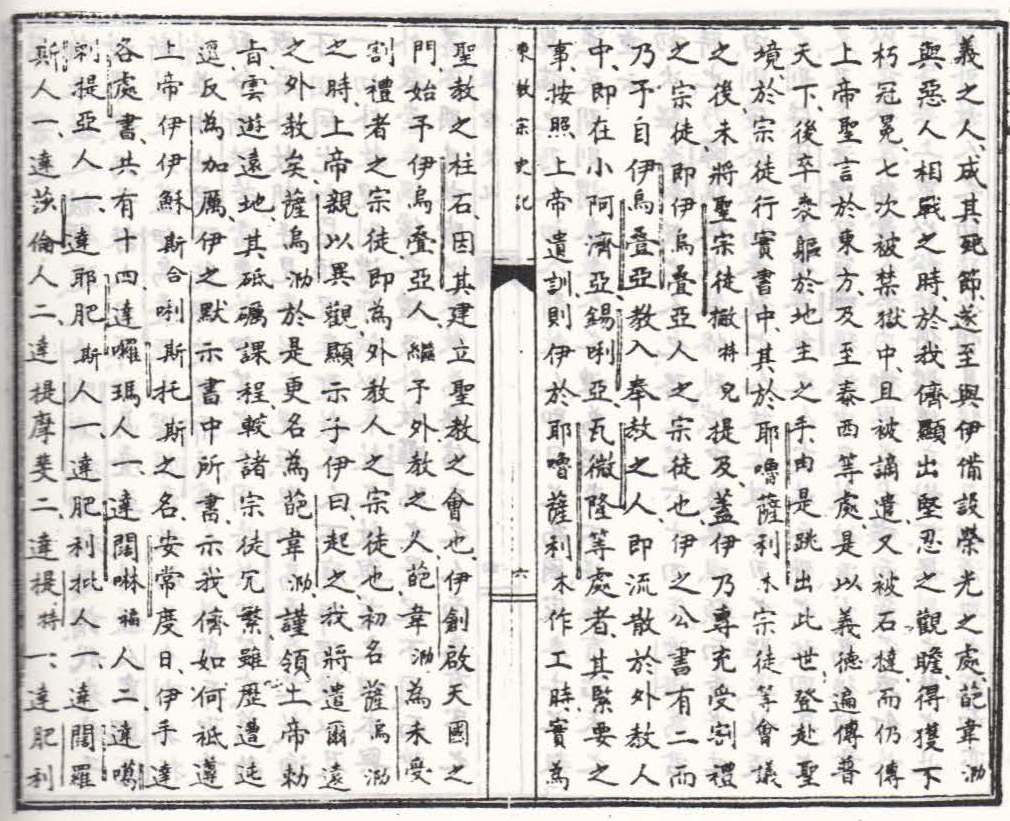 義之人、成其死節、遂至與伊備設榮光之處、葩韋泐
與惡人相戰之時、於我儕顯出堅忍之觀瞻、得獲下
朽冠冕、七次被禁獄中、且被謫遣、又被石撻、而仍傳
上帝聖言於東方、及至泰西等處、是以義德遍傳普
天下、後卒委軀於地主之手、由是跳出此世、登赴聖
境、於宗徒行實書中、其於耶嚕薩利木宗徒等會議
之後、未將聖宗徒撇特兒提及、蓋伊乃專充受割禮
之宗徒、即伊烏疊亞人之宗徒也、伊之公書有二、而
乃予自伊烏疊亞教入奉教之人、即流散於外教人
中、即在小阿濟亞、錫唎亞、瓦微隆等處者、其緊要之
事、按照上帝遺訓、則伊於耶嚕薩利木作工時、實為
東教宗史記 六
聖教之柱石、因其建立聖教之會也、伊創啟天國之
門、始予伊烏疊亞人、繼予外教之人、葩韋泐為未受
割禮者之宗徒、即為外教人之宗徒也、初名薩烏泐
之時、上帝親以異觀顯示予伊曰、起之、我將遣爾遠
之外教矣、薩烏泐於是更名為葩韋泐、謹領上帝勅
旨、雲遊遠地、其砥礪課程、較諸宗徒冗繁、雖歷遭迍
邅、反為加厲、伊之默示書中所書、示我儕如何祗遵
上帝伊伊穌斯合唎斯托斯之名、安常度日、伊手達
各處書、共有十四、達囉瑪人一、達闊啉福人二、達噶
剌提亞人一、達耶肥斯人一、達肥利批人一、達闊羅
斯人一、達莎倫人二、達提摩斐二、達提特一、達肥利